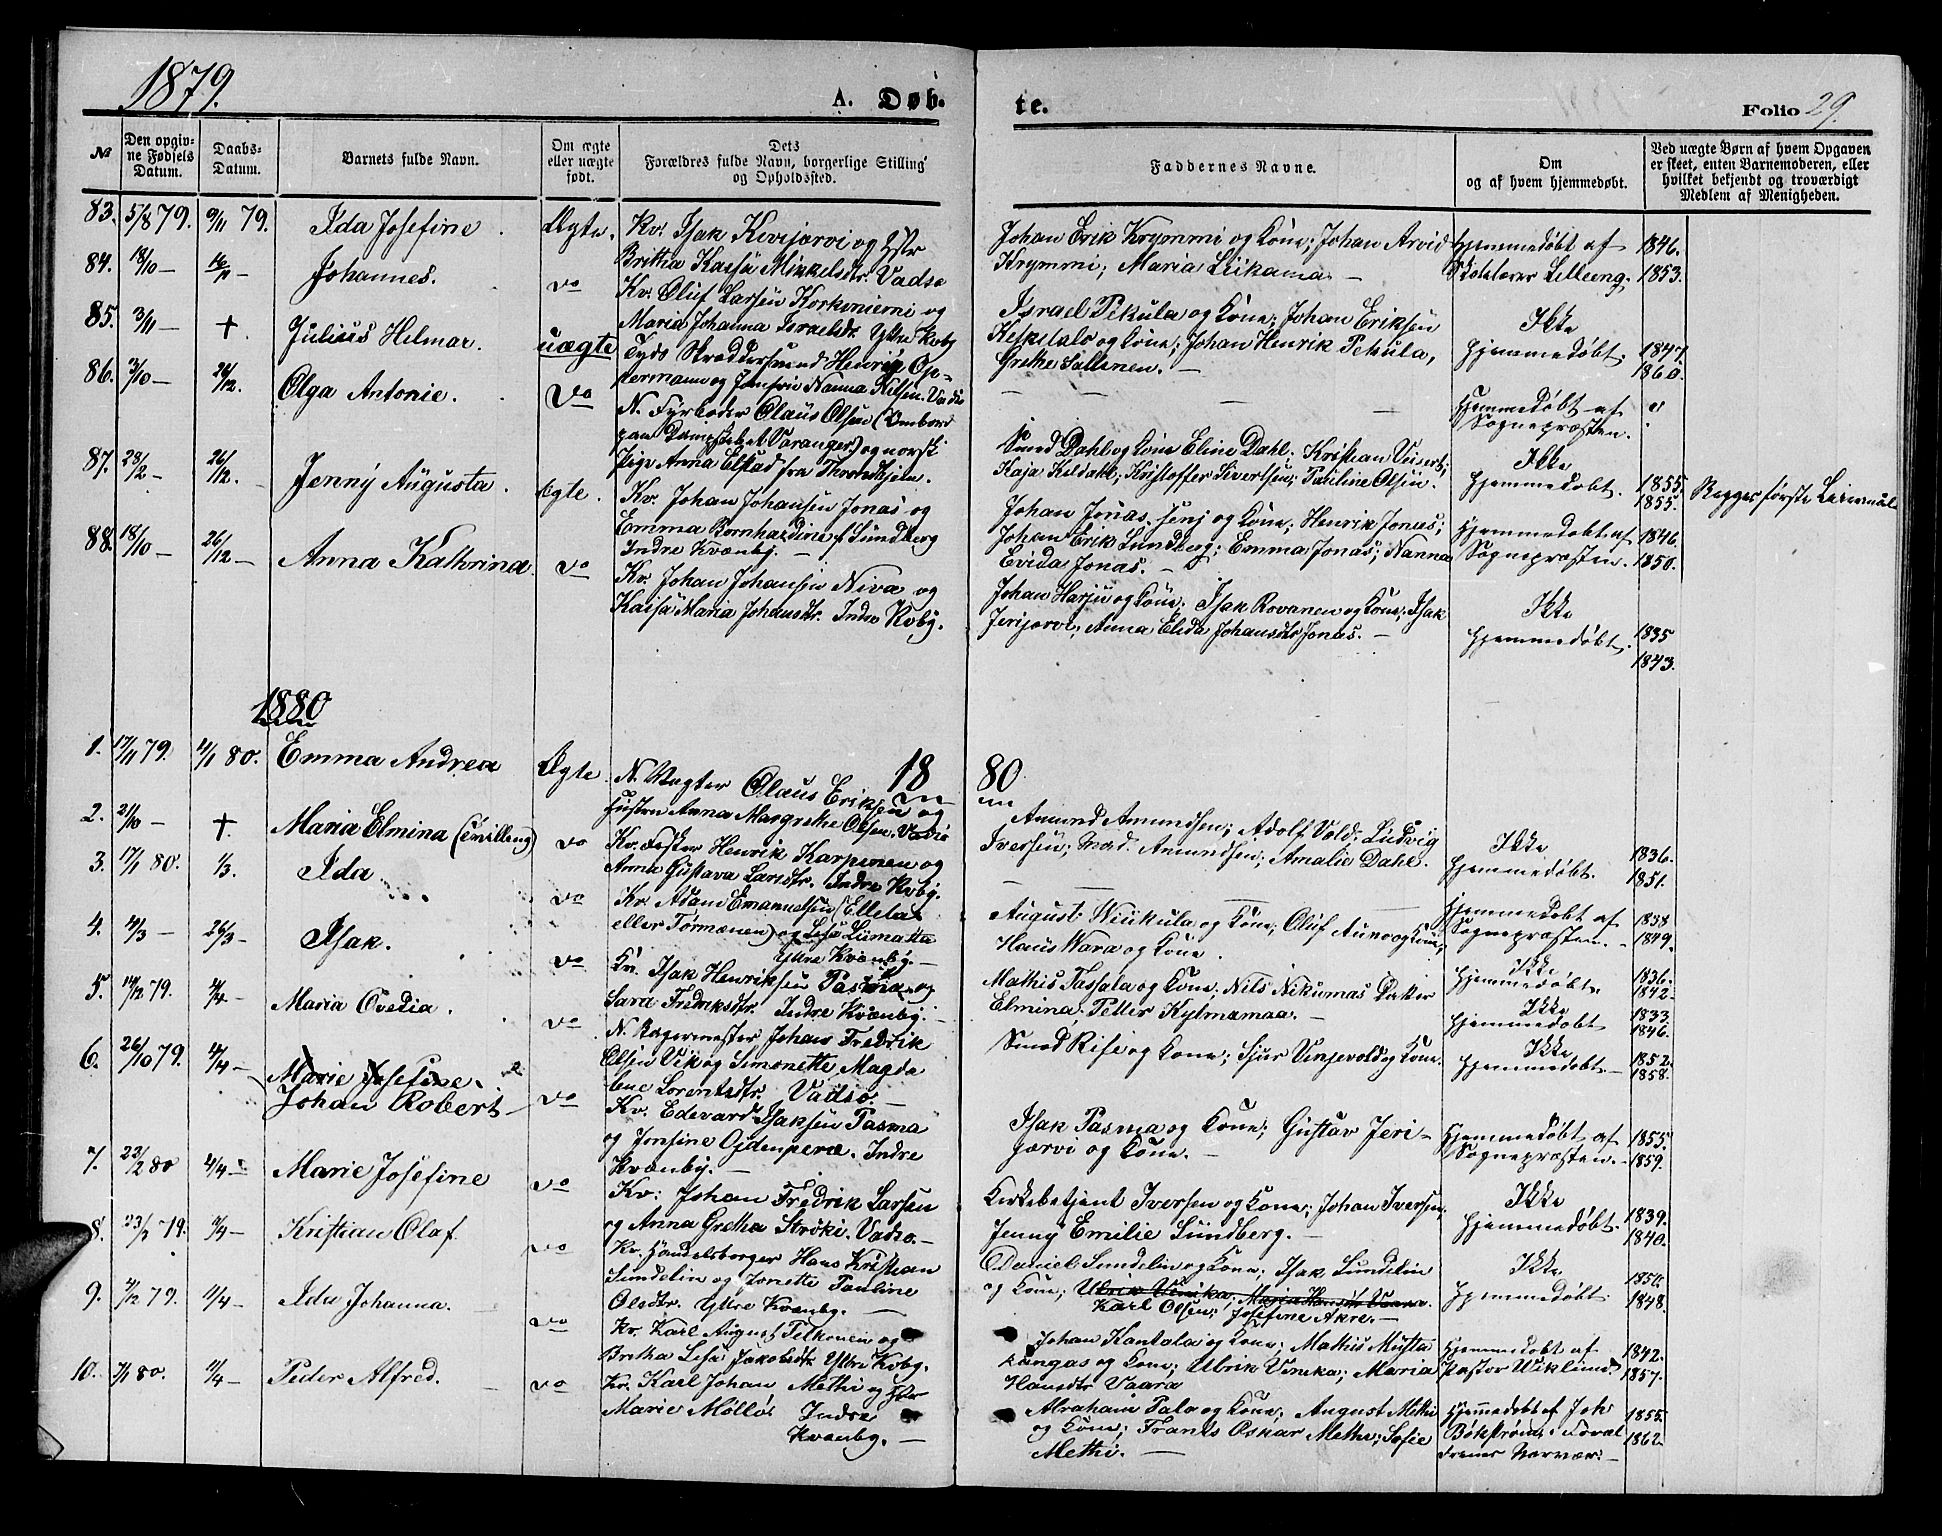 1879.
A. Døb-
te.
Folio 29.
№
Den opgiv-
ne Fødsels
Datum.
Daabs-
Datum.
Barnets fulde Navn.
Om ægte
eller uægte
født.
Dets
Forældres fulde Navn, borgerlige Stilling
og Opholdssted.
Faddernes Navne.
Om
og af hvem hjemmedøbt.
Ved uægte Børn af hvem Opgaven
er skeet, enten Barnemoderen, eller
hvilket bekjendt og troværdigt
Medlem af Menigheden.
83. 5/8 79. 9/11 79. Ida Josefine. Ægte.
Kv. Isak Kivijærvi og Hstr
Britha Kaisa Mikkelsdtr. Vadsø
Johan Erik Krymmi og Kone; Johan Arvid
Krymmi; Maria Liikama. —
Hjemmedøbt af
Skolelærer Lilleeng.
1846.
1853.
84. 18/10 — 16/11 — Johannes. do
Kv. Oluf Larsen Korkoniemi og
Maria Johanna Israelsdtr Ytre Kvby
Israel Pekula og Kone; Johan Eriksen
Keskitalo og Kone; Johan Henrik Pekula,
Grethe Sallinen. —
Ikke
hjemmedøbt.
1847.
1860.
85. 3/11 — † Julius Helmar. uægte
Tydsk Skræddersvend Henrik Op-
permann og Jomfru Nanna Nilsen. Vadsø
— — — —
Hjemmedøbt af
Sognepræsten.
86. 3/10 — 26/12. Olga Antonie. do
N. Fyrbøder Olaus Olsen (Ombord
paa Dampskibet Varanger) og norsk
Pige Anna Elstad fra Throndhjem.
Smed Dahl og Kone Eline Dahl; Kristian Veisert;
Kaja Kildahl; Kristoffer Sivertsen; Pauline Olsen.
Ikke
hjemmedøbt.
1855
1855.
Begges første Leiermål
87. 28/2 — 26/12. — Jenny Augusta. Ægte.
Kv. Johan Johansen Jonas og
Emma Bernhardine f Sundberg
Indre Kvænby. —
Johan Jonas, senj og Kone; Henrik Jonas;
Johan Erik Lundberg; Emma Jonas; Nanna
Evida Jonas. —
Hjemmedøbt af
Sognepræsten.
1846.
1850.
88. 18/10 — 26/12 — Anna Kathrina. do
Kv. Johan Johansen Niva og
Kaisa Maria Johansdtr. Indre Kvby.
Johan Harju og Kone; Isak Rovanen og Kone; Isak
Jerijærvi; Anna Elida Johansdtr Jonas. —
Ikke
hjemmedøbt.
1835
1843.
1880
18 80
1. 17/11 79. 4/1 80. Emma Andrea Ægte.
N. Vægter Olaus Eriksen og
Hustru Anna Margrethe Olsen. Vadsø
Amund Amundsen; Adolf Vold; Ludvig
Iversen; Mad. Amundsen; Amalie Dahl.
Ikke
hjemmedøbt.
1836.
1851.
2. 21/10 — †. Maria Elmina (tvilling) do
Kv. Fisker Henrik Karppinen og
Anna Gustava Larsdtr. Indre Kvby.
— —
Hjemmedøbt af
Sognepræsten. —
1838
1849.
3. 17/1 80. 1/3. Ida do
Kv. Adam Emanuelsen (Ellela
eller Tørmænen) og Lisa Liimatta
Ytre Kvænby. —
August Niikula og Kone; Oluf Auno og Kone;
Hans Wara og Kone.
Ikke
hjemmedøbt.
1836.
1842.
4. 4/3 — 26/3 — Isak. do
Kv. Isak Henriksen Pasma og
Sara Fredriksdtr. Indre Kvænby. —
Mathis Tassala og Kone; Nils Nikumas Datter
Elmina; Petter Kylmamaa. —
Ikke
hjemmedøbt
1833
1846.
5. 14/12 79. 4/4 — Maria Ovedia. do
N. Bagermester Johan Fredrik
Olsen Vik og Simonette Magda
lene Lorentsdtr. Vadsø. —
Smed Rise og Kone; Sjur Vinjevold og Kone.
Ikke
hjemmedøbt —
1852.
1858.
6. 26/10 79. 4/4 — Marie Josefine.
Johan Robert do
Kv. Edevard Isaksen Pasma
og Josefine Ojdenperæ. Indre
Kvænby. —
Isak Pasma og Kone; Gustav Jeri-
jærvi og Kone. —
Hjemmedøbt af
Sognepræsten. —
1855.
1859.
7. 23/2 80 4/4 — Marie Josefine do
Kv. Johan Fredrik Larsen
og Anna Gretha Strøki. Vadsø. —
Kirkebetjent Iversen og Kone; Johan Iversen;
Jenny Emilie Sundberg. —
Ikke
hjemmedøbt.
1839.
1840.
8. 23/12 79. 4/4 — Kristian Olaf do
Kv. Handelsborger Hans Kristian
Sundelin og Jonette Pauline
Olsdtr. Ytre Kvænby. —
Daniel Sundelin og Kone; Isak Sundelin
og Kone; Ulrik Vinika; Maria Hansdtr Vaara.
Karl Olsen; Josefine Akre. —
Ikke
hjemmedøbt.
1850.
1848.
9. 4/12 79. 11/4 — Ida Johanna. do
Kv. Karl August Pelkonen og
Bretha Lisa Jakobsdtr Ytre Kvby.
Johan Kantola og Kone; Mathis Musta
kangas og Kone; Ulrik Vinika; Maria
Hansdtr Vaara
Hjemmedøbt af
Pastor Wiklund
1842.
1857.
10. 7/1 80. 11/4 — Peder Alfred. — do
Kv. Karl Johan Methi og Hstr
Marie Mølløs Indre
Kvænby. —
Abraham Palo og Kone; August Methi
og Kone; Frants Oskar Methi; Sofie
Methi. —
Hjemmedøbt af Joh
Bókstrøm
1855.
1862.